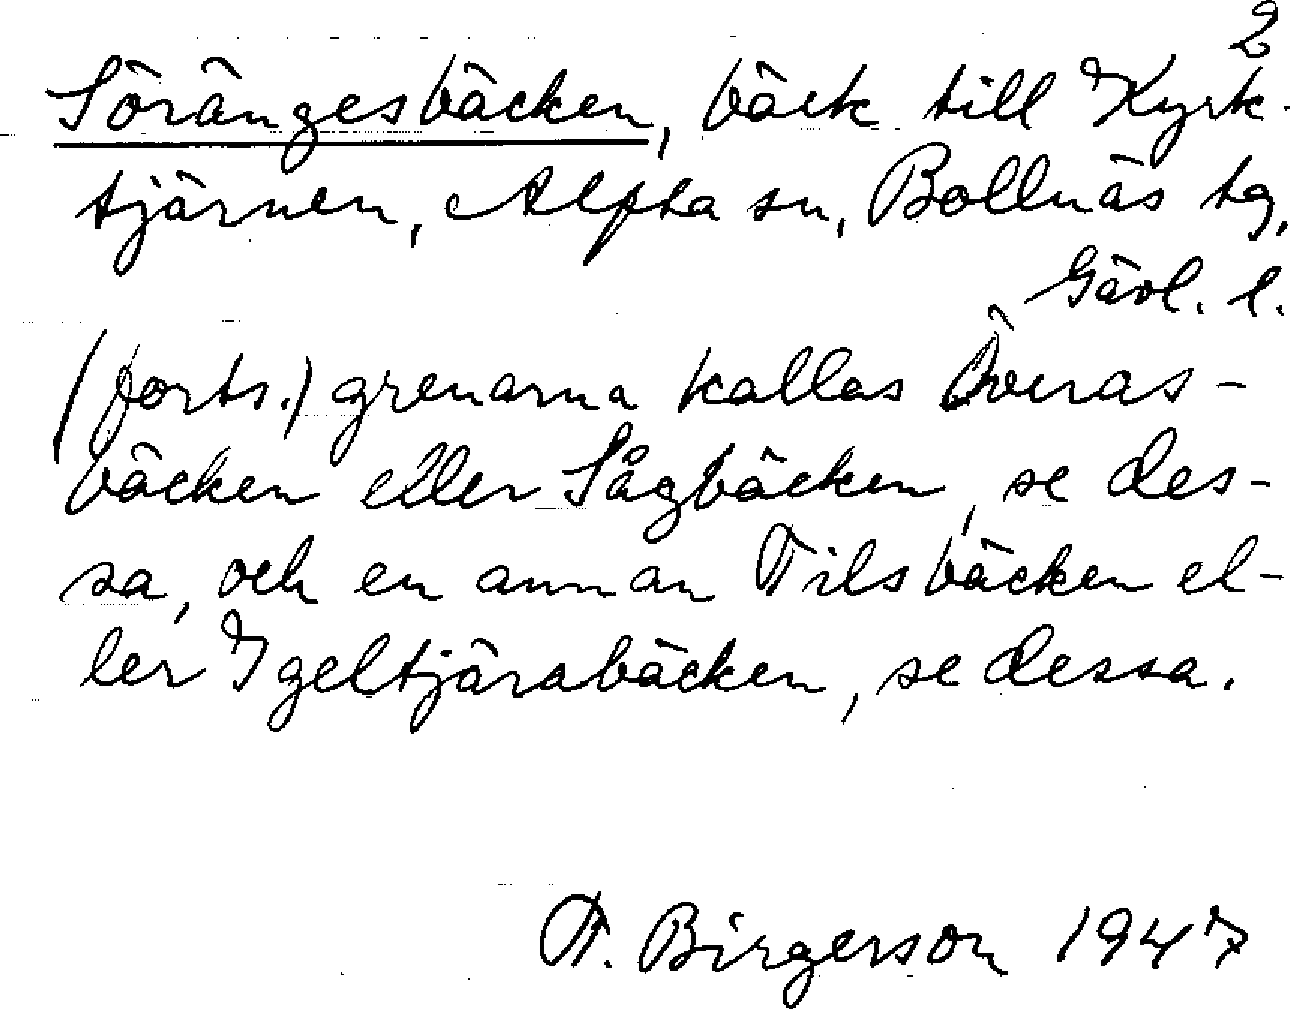 2
Sörängesbäcken, bäck till Kyrk-
tjärnen, Alfta sn, Bollnäs tg,
Gävl. l.
(forts.) grenarna kallas Överas-
bäcken eller Sågbäcken, se des-
sa, och en annan Tilsbäcken el-
ler Igeltjärabäcken, se dessa.
F. Birgerson 1947